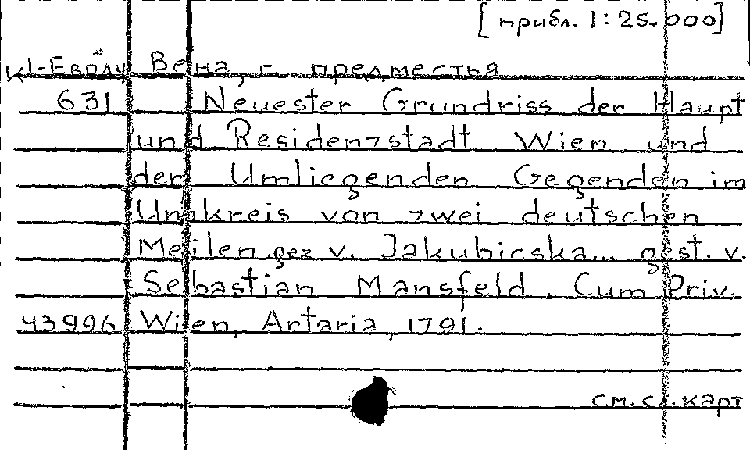 [прибл. 1:25.000]
К1-Европ Вена, г. предместья
631 Neuester Grundriss der Haupt
und Residenzstadt Wien und
der Umliegenden Gegenden im
Umkreis von zwei deutschen
Meilen gez v. Jakubicska... gest. v.
Sebastian Mansfeld. Cum Priv.
43996 Wien, Artaria, 1791.
см. сл. карт